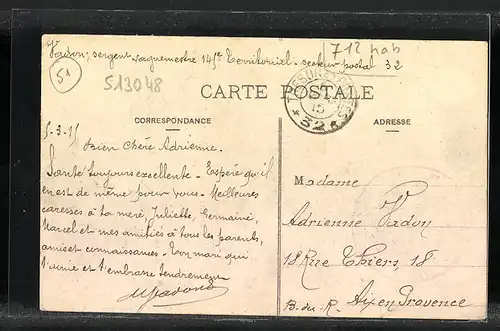 712 hab
Vadon, sergent vaguemestre 145e Territorial - secteur postal 32
51
513048
TRESOR ET POSTES
15
* 32 *
CARTE POSTALE
CORRESPONDANCE
ADRESSE
5-3-15
Bien Chère Adrienne.
Santé toujours excellente - Espère qu'il
en est de même pour vous - Meilleures
caresses à ta mère, Juliette, Germaine,
Marcel et mes amitiés à tous les parents,
amis et connaissances - Ton mari qui
t'aime et t'embrasse tendrement
Madame
Adrienne Vadon
18 Rue Thiers, 18
B. du. R. Aix en Provence